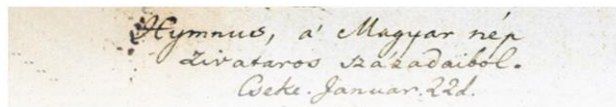 Hymnus, a' Magyar nép
zivataros századaiból.
Cseke. Januar. 22d.